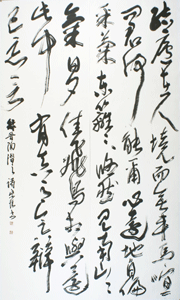 結廬在人境而無車馬喧
問君何能爾心遠地自偏
采菊東籬下悠然見南山山
氣日夕佳飛鳥相與還
此中有真意欲辯
已忘言